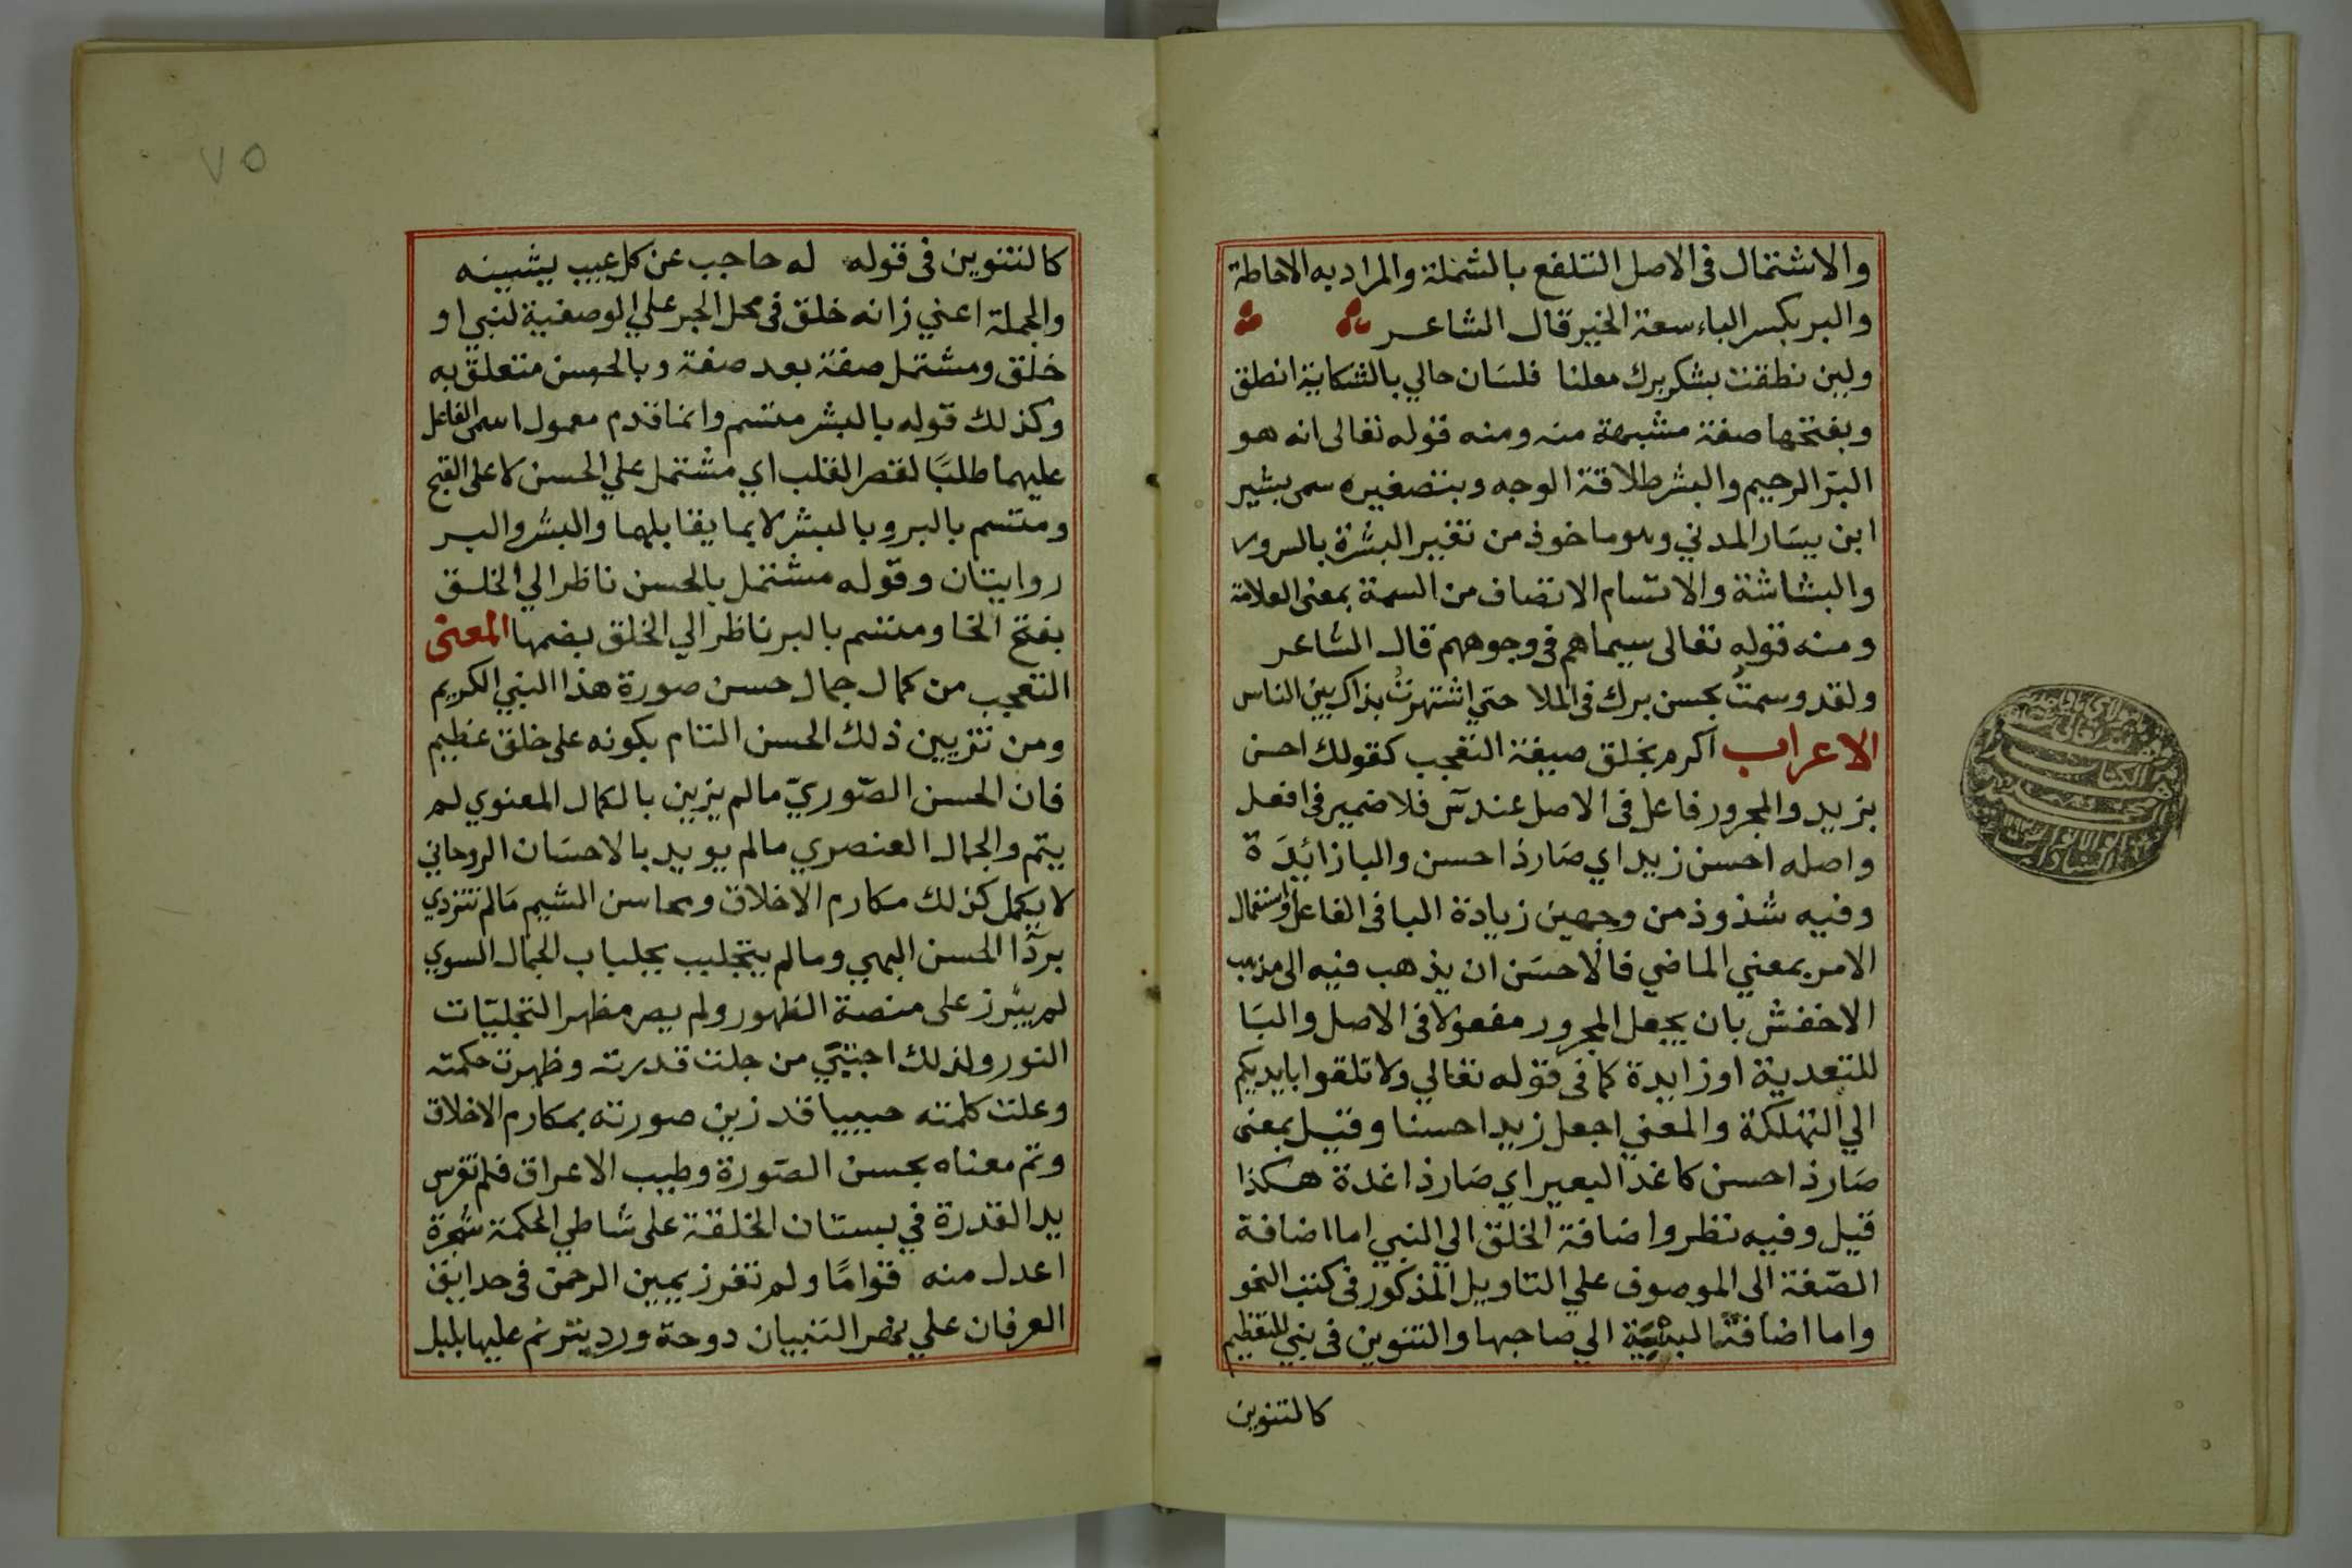 والاشتمال في الاصل التلفع بالشملة والمراد به الاحاطة
والبر بكسر الباء سعة الخير قال الشاعر
ولين نطقت بشكر برك معلنا فلسان حالي بالشكاية انطق
وبفتحها صفة مشبهة منه ومنه قوله تعالى انه هو
البرّ الرحيم والبشر طلاقة الوجه وبتصغيره سمى بشير
ابن يسَار المدني وهو ماخوذ من تغيير البشرة بالسرور
والبشاشة والاتسام الاتصاف من السمة بمعنى العلامة
ومنه قوله تعالى سيماهم في وجوههم قال الشاعر
ولقد وسمتُ بحسن برك في الملا حتي اشتهرتُ بذاك بين الناس
الاعراب اكرم بخلق صيغة التعجب كقولك احسن
بزيد والمجرور فاعل في الاصل عند س فلا ضمير في افعل
واصله احسن زيد اي صَار ذا حسن والبا زائدَة
وفيه شذوذ من وجهين زيادة البا في الفاعل واستعمال
الامر بمعني الماضي فالاحسَن ان يذهب فيه الى مذهب
الاخفش بان يجعل المجرور مفعولا في الاصل والبَا
للتعدية او زايدة كما في قوله تعالي ولا تلقوا بايديكم
الي التهلكة والمعني اجعل زيدا حسنا وقيل بمعنى
صَار ذا حسن كاغد البعير اي صَار ذا غدة هكذا
قيل وفيه نظر واضافة الخلق الي النبي اما اضافة
الصّفة الى الموصوف علي التاويل المذكور في كتب النحو
واما اضافة الي صاحبها والتنوين في نبي للتعظيم
كالتنوين
٧٥
كالتنوين في قوله له حاجب عن كل عيب يشينه
والجملة اعني زانه خلق في محل الجر علي الوصفية لنبي او
خلق ومشتمل صفة بعد صفة وبالحسن متعلق به
وكذلك قوله بالبشر متسم وانما قدم معمول اسمى الفاعل
عليهما طلبًا لقصر القلب اي مشتمل علي الحسن لا على القبح
ومتسم بالبر وبالبشر لا بما يقابلهما والبشر والبر
روايتان وقوله مشتمل بالحسن ناظر الي الخلق
بفتح الخا ومتسم بالبر ناظر الي الخلق بضمها المعنى
التعجب من كمال جمال حسن صورة هذا النبي الكريم
ومن تزيين ذلك الحسن التام بكونه على خلق عظيم
فان الحسن الصّوريّ ما لم يزين بالكمال المعنوي لم
يتم والجمال العنصري ما لم يويد بالاحسَان الروحاني
لا يكمل كذلك مكارم الاخلاق ومحاسن الشيم مَا لم تتردي
بردّا الحسن البهي وما لم يتجلبب بجلباب الجمال السوي
لم يبرز على منصة الظهور ولم يصر مظهر التجليّات
النور ولذلك اجتبي من جلت قدرته وظهرت حكمته
وعلت كلمته حبيبا قد زين صورته بمكارم الاخلاق
وتم معناه بحسن الصّورة وطيب الاعراق فلم تغرس
يد القدرة في بستان الخلقة على شاطي الحكمة شجرة
اعدل منه قوامًا ولم تغرز يمين الرحمن في حدايق
العرفان علي التبيان دوحة ورد يترنم عليها بلبل